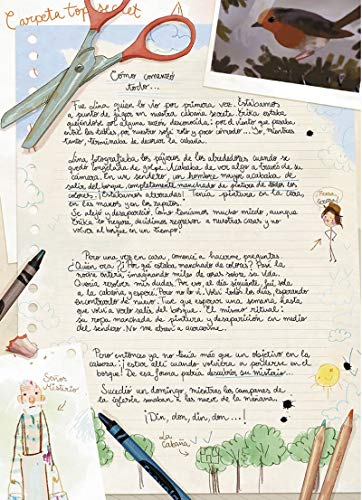 Carpeta top secret
Cómo comenzó
todo...
Fue Lina quien lo vio por primera vez. Estábamos
a punto de jugar en nuestra cabaña secreta. Erika estaba
quejándose por alguna razón desconocida: por el viento que pasaba
entre las tablas, por nuestro sofá roto y poco cómodo... Yo, mientras
tanto, terminaba de decorar la cabaña.
Lina fotografiaba los pájaros de los alrededores cuando se
quedó congelada de golpe. Acababa de ver algo a través de su
cámara. En un sendero, un hombre mayor acababa de
salir del bosque completamente manchado de pintura de todos los
colores. ¡Estábamos aterradas! Tenía pintura en la cara,
en las manos y en los zapatos.
Se alejó y desapareció. Como teníamos mucho miedo, aunque
Erika lo negara, decidimos regresar a nuestras casas y no
volver al bosque en un tiempo.
Pero una vez en casa, comencé a hacerme preguntas.
¿Quién era? ¿Por qué estaba manchado de colores? Pasé la
noche entera imaginando miles de cosas sobre su vida.
Quería resolver mis dudas. Por eso al día siguiente, fui sola
a la cabaña y esperé. Pero no lo vi. Volví todos los días, esperando
encontrarlo de nuevo. Tuve que esperar una semana hasta
que volvió a salir del bosque. El mismo ritual:
su ropa manchada de pintura y desaparición en medio
del sendero. No me atreví a acercarme.
Pero entonces ya no tenía más que un objetivo en la
cabeza: ¡estar allí cuando volviera a perderse en el
bosque! De esa forma podría descubrir su misterio...
Sucedió un domingo, mientras las campanas de
la iglesia sonaban a las nueve de la mañana.
¡Din, don, din, don...!
Señor
Misterio
La
Cabaña